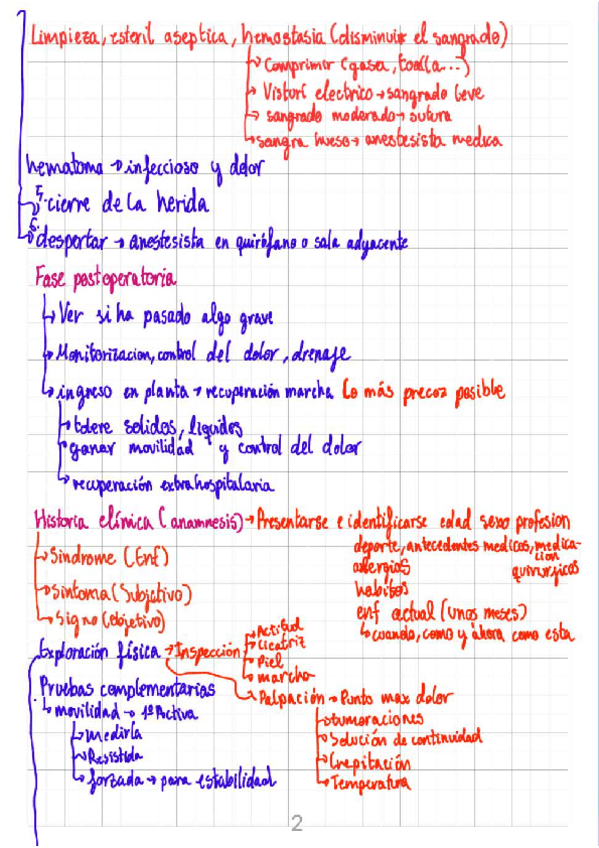 Limpieza, esteril aseptica, hemostasia (disminuir el sangrado)
↳ Comprimir (gasa, toalla...)
↳ Visturí electrico → sangrado leve
↳ sangrado moderado → sutura
↳ sangra hueso → anestesista medica
hematoma → infeccioso y dolor
5. cierre de la herida
6. despertar → anestesista en quirófano o sala adyacente
Fase postoperatoria
↳ Ver si ha pasado algo grave
↳ Monitorizacion, control del dolor, drenaje
↳ ingreso en planta → recuperación marcha lo más precoz posible
↳ tolere solidos, liquidos
↳ ganar movilidad y control del dolor
↳ recuperación extrahospitalaria
Historia clínica (anamnesis) → Presentarse e identificarse edad sexo profesion
deporte, antecedentes medicos, medicacion
quirurgicos
alergias
habitos
enf actual (unos meses)
↳ cuando, como y ahora como esta
↳ Sindrome (Enf)
↳ Sintoma (Subjetivo)
↳ Signo (objetivo)
Exploración física → Inspección
↳ Actitud
↳ Cicatriz
↳ Piel
↳ marcha
→ Palpación → Punto max dolor
↳ tumoraciones
↳ Solución de continuidad
↳ Crepitación
↳ Temperatura
Pruebas complementarias
↳ movilidad → 1º Activa
↳ medirla
↳ Resistida
↳ forzada → para estabilidad
2